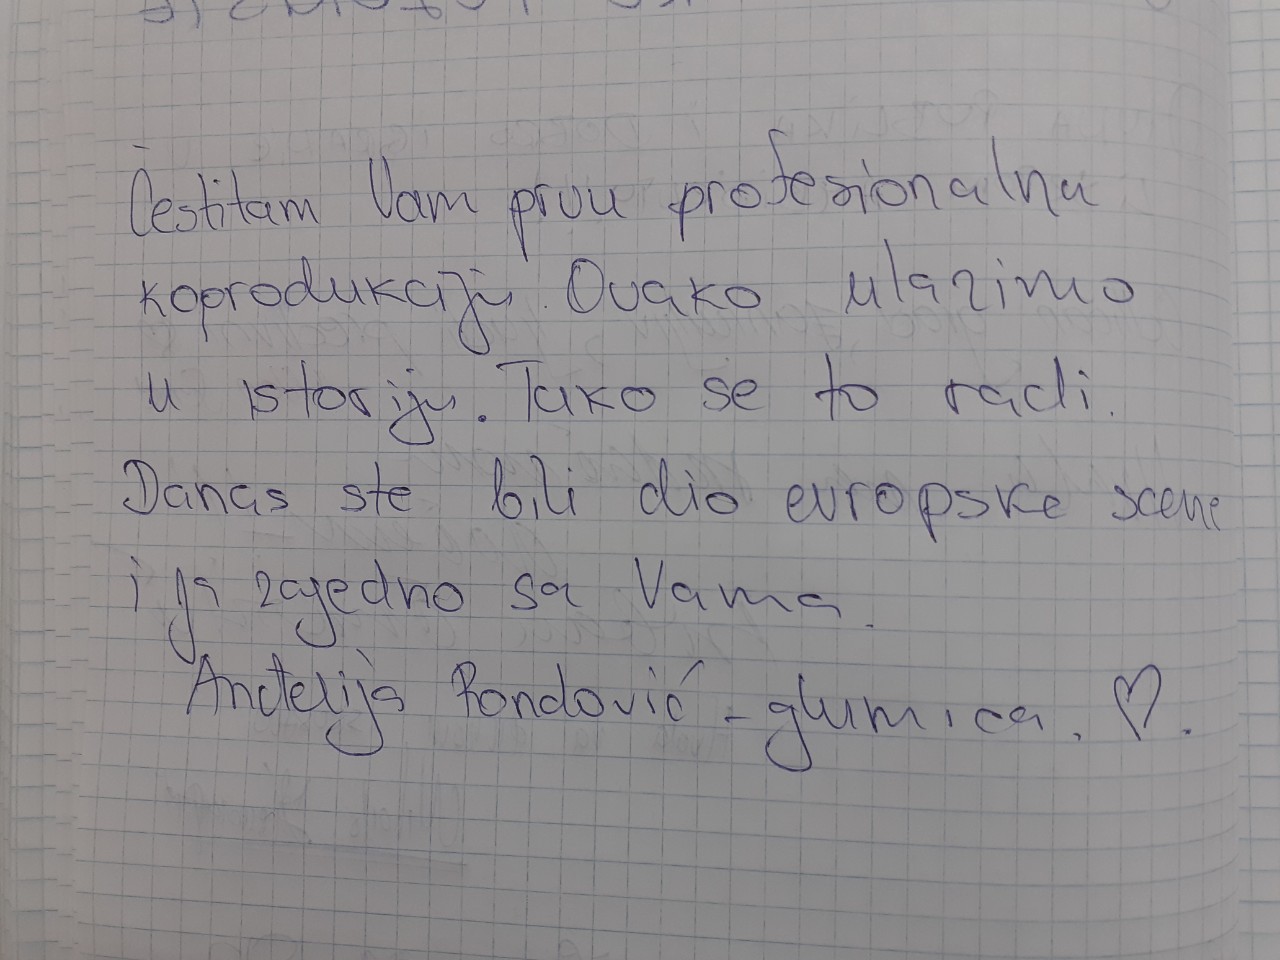 Čestitam Vam prvu profesionalnu
koprodukciju. Ovako ulazimo
u istoriju. Tako se to radi.
Danas ste bili dio evropske scene
i ja zajedno sa Vama.
Anđelija Rondović - glumica. ♡.